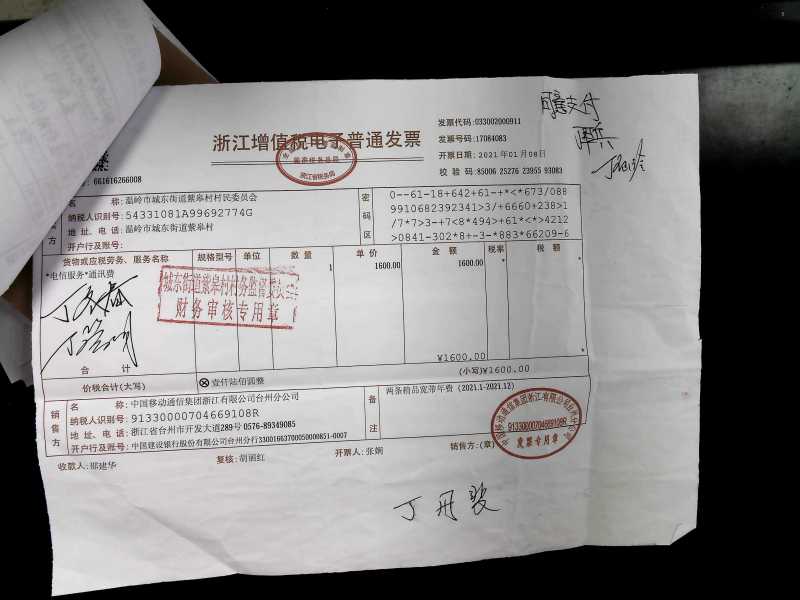 同意支付
浙江增值税电子普通发票
发票代码:033002000911
发票号码:17084083
开票日期:2021年01月08日
校 验 码:85006 25276 23955 93083
661616266008
名 称:温岭市城东街道紫皋村村民委员会
纳税人识别号:54331081A99692774G
地 址、电 话:温岭市城东街道紫皋村
开户行及账号:
方
密码区
0--61-18+642+61-+*<*673/088
9910682392341>3/+6660+238>1
/7*7>3-+7<8*494>+61<*>4212
>0841-302*8+-3-*883*66209-6
货物或应税劳务、服务名称 规格型号 单位 数 量 单 价 金 额 税率 税 额
*电信服务*通讯费 1 1600.00 1600.00 * *
城东街道紫皋村村务监督委
财务审核专用章
合 计 ¥1600.00 *
价税合计(大写) ⊗壹仟陆佰圆整 (小写)¥1600.00
销售方
名 称:中国移动通信集团浙江有限公司台州分公司
纳税人识别号:91330000704669108R
地 址、电 话:浙江省台州市开发大道289号 0576-89349085
开户行及账号:中国建设银行股份有限公司台州分行33001663700050000851-0007
备注
两条精品宽带年费 (2021.1-2021.12)
中国移动通信集团浙江有限公司台州分公司
91330000704669108R
发票专用章
收款人:邵建华 复核:胡丽红 开票人:张娴 销售方:(章)